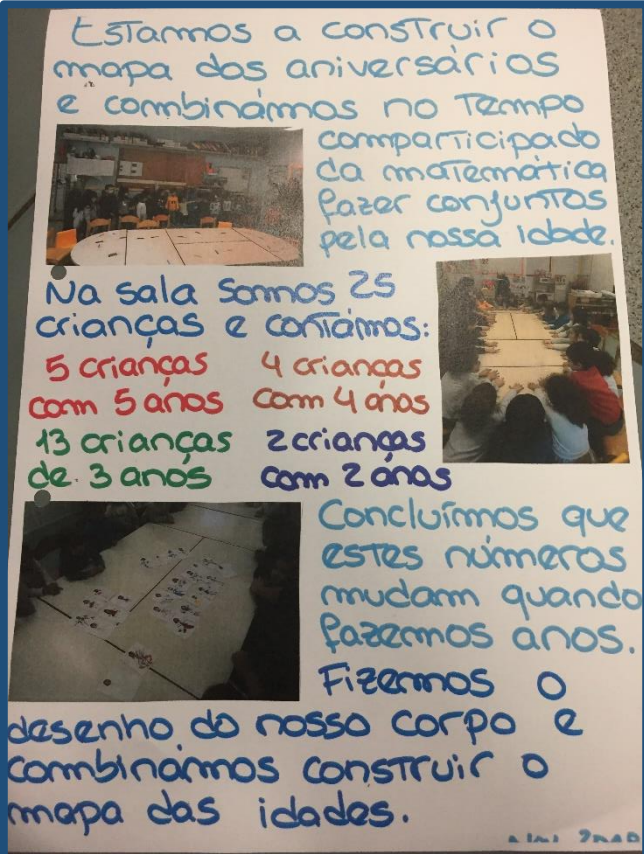 Estamos a construir o
mapa dos aniversários
e combinámos no Tempo
comparticipado
da matemática
fazer conjuntos
pela nossa idade.
Na sala somos 25
crianças e contámos:
5 crianças
com 5 anos
4 crianças
com 4 anos
13 crianças
de 3 anos
2 crianças
com 2 anos
Concluímos que
estes números
mudam quando
fazemos anos.
Fizemos o
desenho do nosso corpo e
combinámos construir o
mapa das idades.